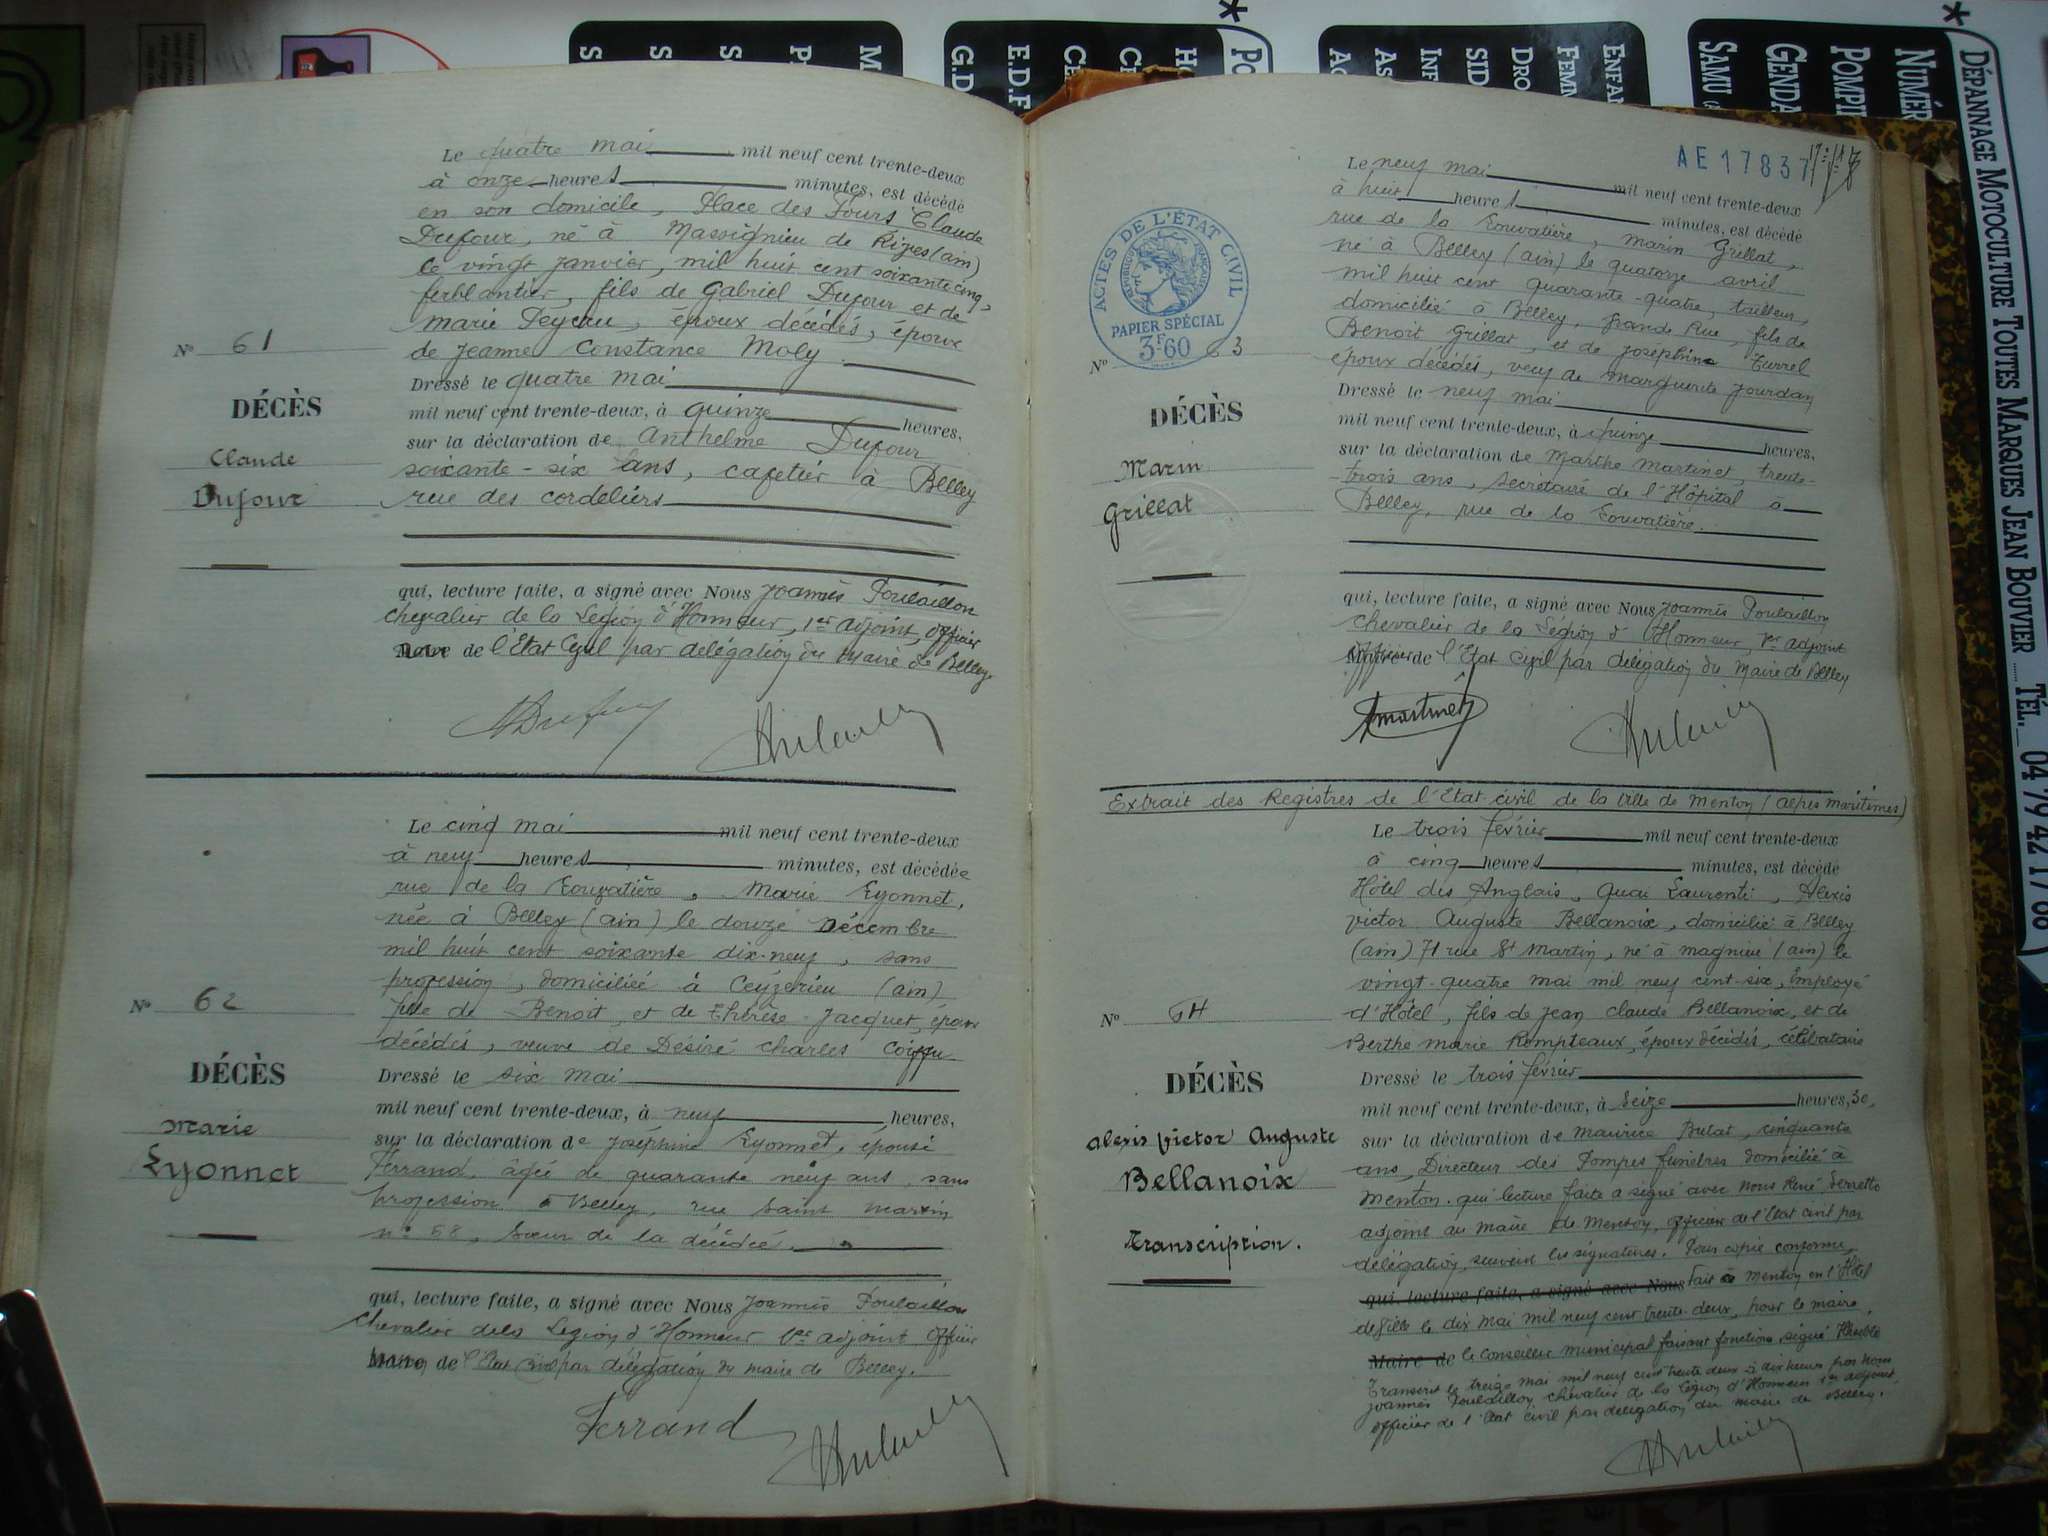 Le quatre mai mil neuf cent trente-deux
à onze heures minutes, est décédé
en son domicile, Place des Fours Claude
Dufour, né à Massignieu de Rives (ain)
le vingt janvier, mil huit cent soixante cinq,
ferblantier, fils de Gabriel Dufour et de
marie Peycru, époux décédés, époux
de Jeanne Constance Moly
N° 61
DÉCÈS
Claude
Dufour
Dressé le quatre mai
mil neuf cent trente-deux, à quinze heures,
sur la déclaration de Anthelme Dufour
soixante-six ans, cafetier à Belley
rue des cordeliers
qui, lecture faite, a signé avec Nous Joannès Poulaillon
chevalier de la Légion d'Honneur, 1er adjoint, officier
de l'Etat Civil par délégation du Maire de Belley
Le cinq mai mil neuf cent trente-deux
à neuf heures minutes, est décédée
rue de la Louvatière, Marie Lyonnet,
née à Belley (ain) le douze Décembre
mil huit cent soixante dix-neuf, sans
profession, domiciliée à Ceyzérieu (ain)
fille de Benoit, et de Thérèse Jacquet, époux
décédés, veuve de Désiré Charles Coiffu
N° 62
DÉCÈS
Marie
Lyonnet
Dressé le six mai
mil neuf cent trente-deux, à neuf heures,
sur la déclaration de Joséphine Lyonnet, épouse
Ferrand, âgée de quarante neuf ans, sans
profession à Belley, rue Saint Martin
n° 58, Sœur de la décédée.
qui, lecture faite, a signé avec Nous Joannès Poulaillon
chevalier de la Légion d'Honneur 1er adjoint officier
Maire de l'Etat Civil par délégation du maire de Belley.
Ferrand
AE17837
Le neuf mai mil neuf cent trente-deux
à huit heures minutes, est décédé
rue de la Louvatière, Marin Grillat,
né à Belley (ain) le quatorze avril
mil huit cent quarante-quatre, tailleur,
domicilié à Belley, Grande Rue, fils de
Benoit Grillat, et de Joséphine Turrel
époux décédés, veuf de Marguerite Jourdan
ACTES DE L'ÉTAT CIVIL
RÉPUBLIQUE FRANÇAISE
PAPIER SPÉCIAL
3F60
N° 63
DÉCÈS
Marin
Grillat
Dressé le neuf mai
mil neuf cent trente-deux, à quinze heures,
sur la déclaration de Marthe Martinet, trente-
trois ans, secrétaire de l'Hôpital à
Belley, rue de la Louvatière.
qui, lecture faite, a signé avec Nous Joannès Poulaillon
chevalier de la Légion d'Honneur, 1er adjoint
officier de l'Etat Civil par délégation du Maire de Belley
Martinet
Extrait des Registres de l'Etat civil de la Ville de Menton (Alpes Maritimes)
Le trois février mil neuf cent trente-deux
à cinq heures minutes, est décédé
Hôtel des Anglais, Quai Laurenti, Alexis
Victor Auguste Bellanoix, domicilié à Belley
(ain) 71 rue St Martin, né à Magnieu (ain) le
vingt-quatre mai mil neuf cent-six, Employé
d'Hôtel, fils de Jean Claude Bellanoix, et de
Berthe Marie Rompteaux, époux décédés, célibataire
N° 64
DÉCÈS
Alexis Victor Auguste
Bellanoix
Transcription.
Dressé le trois février
mil neuf cent trente-deux, à seize heures, 30,
sur la déclaration de Maurice Bulat, cinquante
ans, Directeur des Pompes funèbres domicilié à
Menton. qui lecture faite a signé avec nous René
adjoint au maire de Menton, officier de l'Etat civil par
délégation, suivent les signatures. Pour copie conforme,
qui, lecture faite, a signé avec Nous Fait à Menton en l'Hôtel
de Ville le dix mai mil neuf cent trente-deux, pour le maire,
Maire de le Conseiller municipal faisant fonctions, signé
Transcrit le treize mai mil neuf cent trente deux à dix heures par Nous
Joannès Poulaillon, chevalier de la Légion d'Honneur 1er adjoint,
officier de l'Etat civil par délégation du maire de Belley.
DÉPANNAGE MOTOCULTURE TOUTES MARQUES JEAN BOUVIER ..... TÉL. 04 79 42 17 88